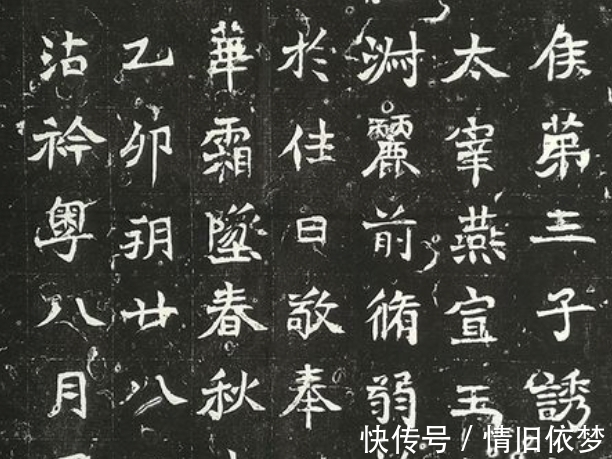 侯第三子誘
太宰燕宣王
淵麗前脩弱
於往日敬奉
華霜墜春秋
乙卯朔廿八
沾衿粤八月
快传号 / 情旧依梦